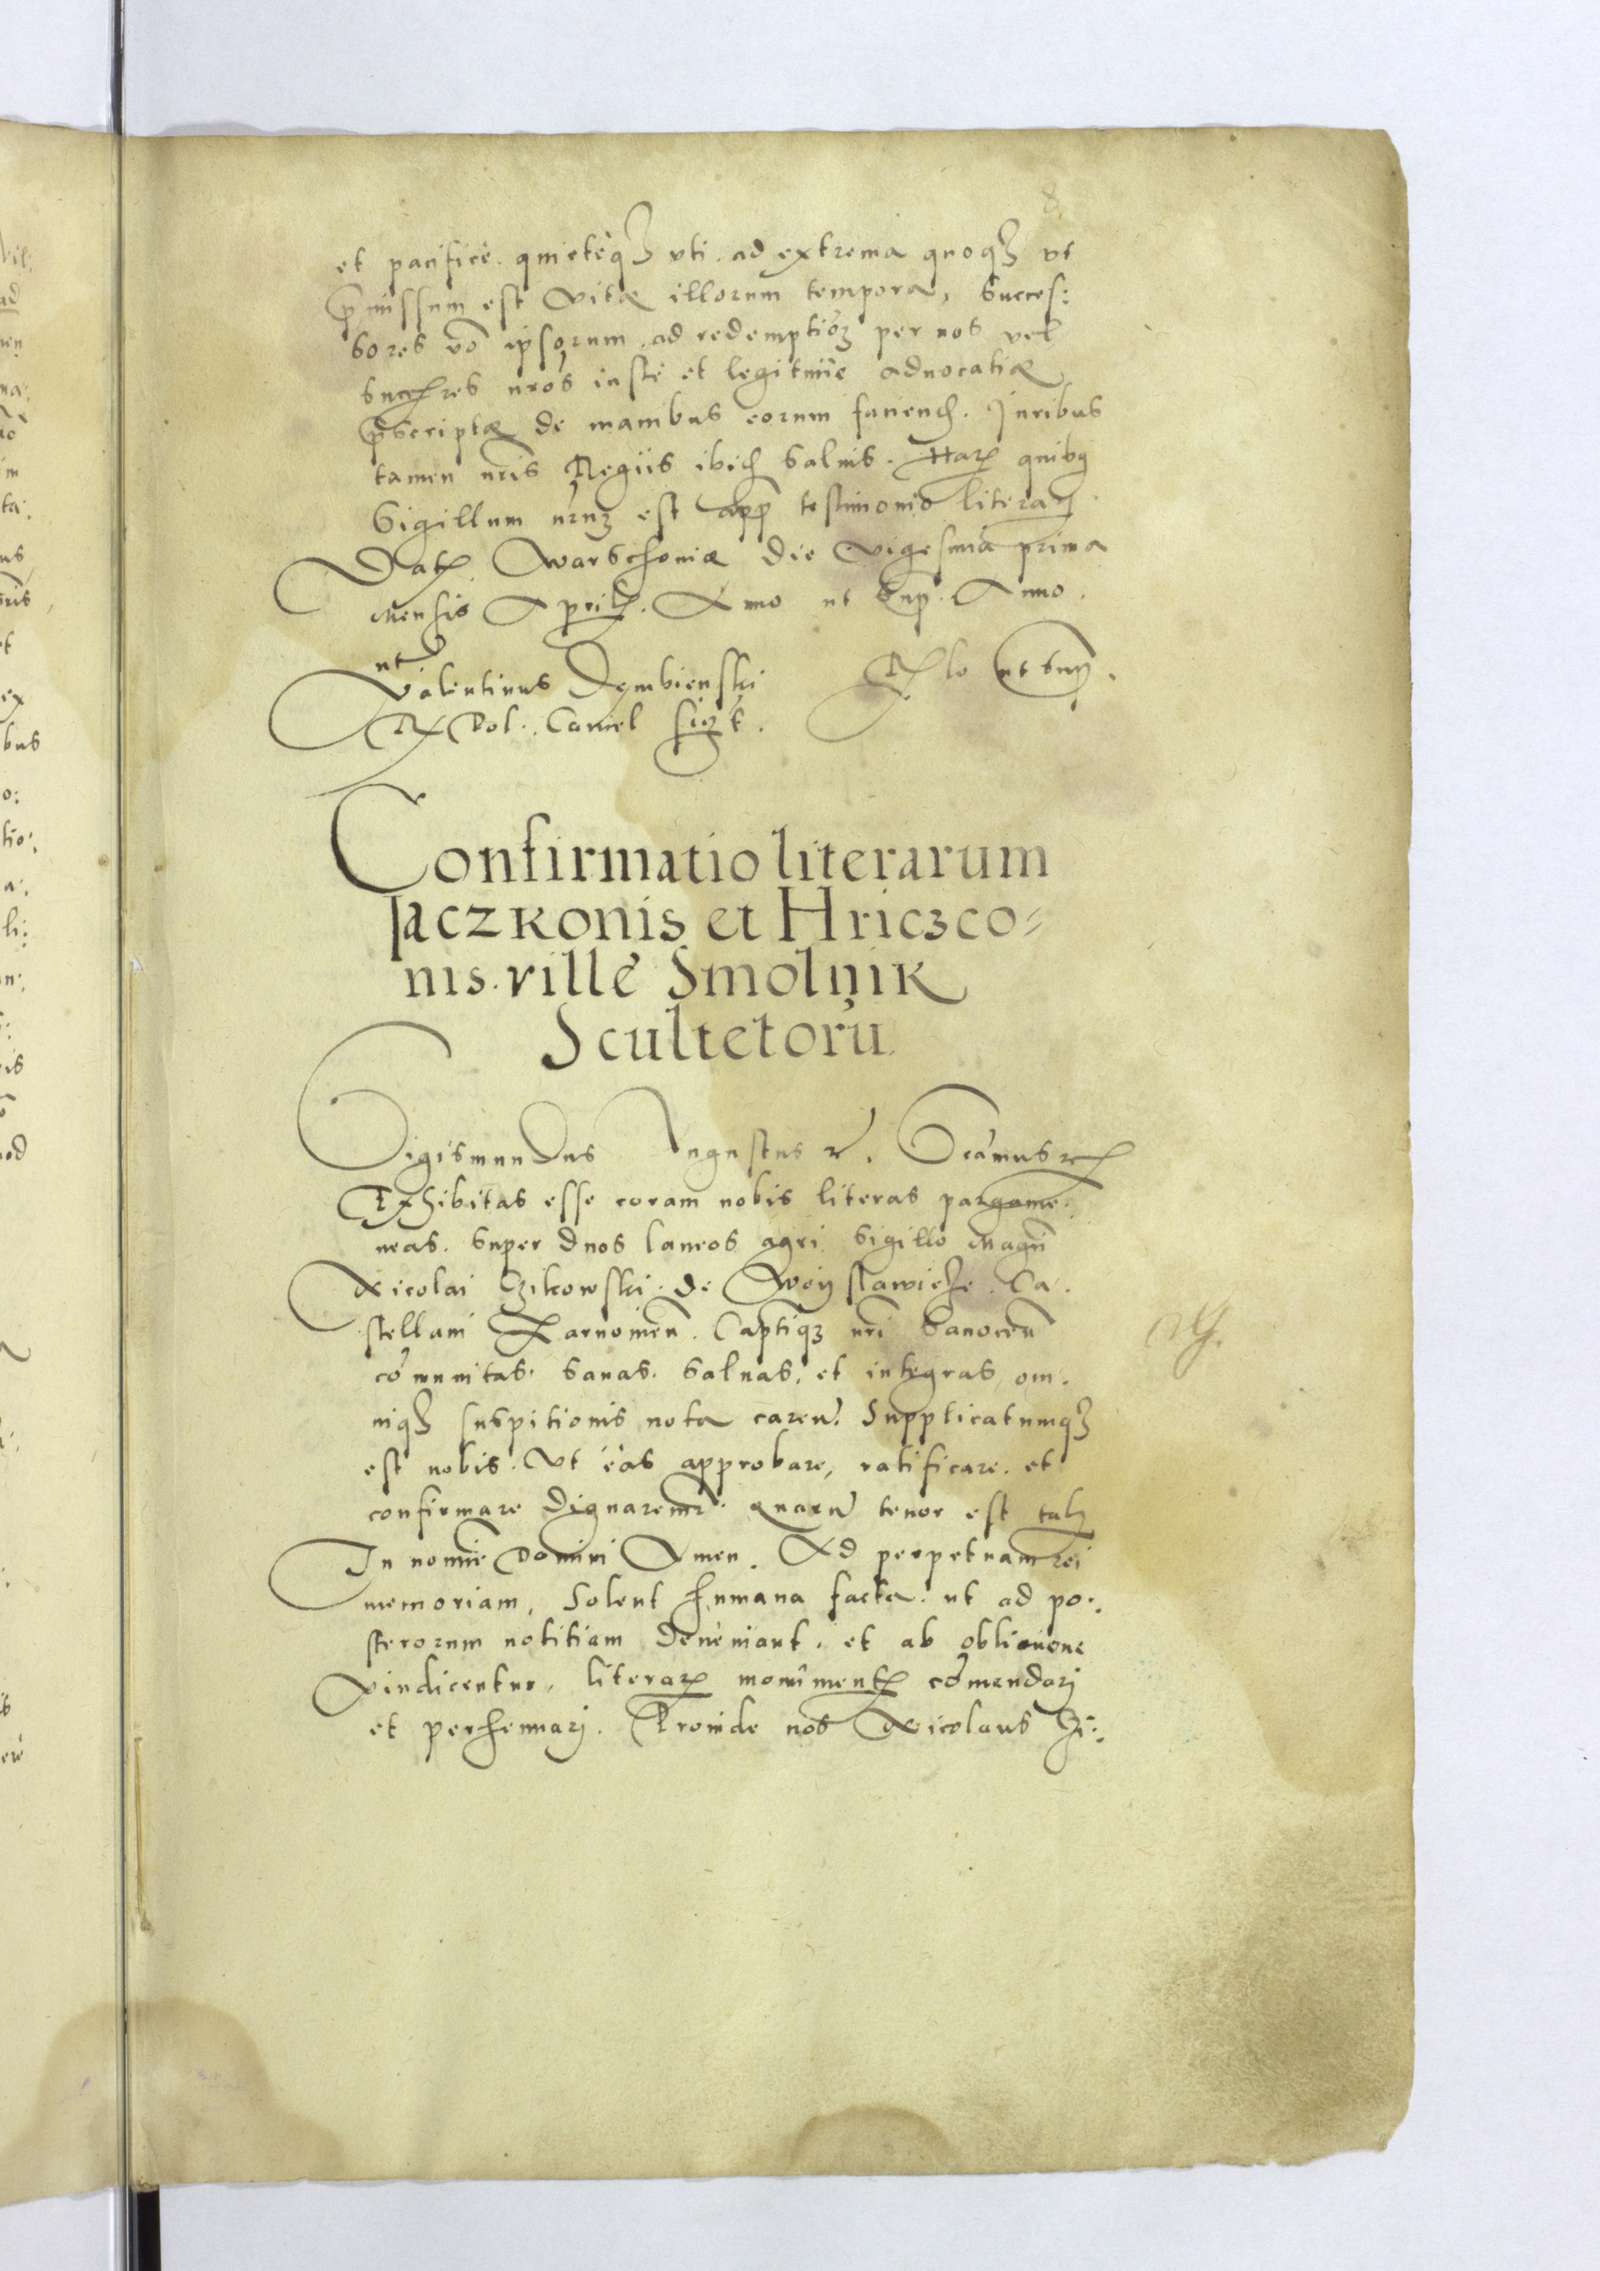 8
et pacifice. quieteq₃ vti. ad extrema quoq₃ vt
p̄missum est vitæ illorum tempora, Succes:
sores vō ipsorum. ad redemptiō₃ per nos vel
succꝭres nrōs iuste et legitime aduocatiæ
p̄scriptæ de manibus eorum faciendꝭ. Juribus
tamen nrīs Regiis ibidꝭ saluis. Harꝝ quibꝯ
Sigillum nrūm est app̄ testimonio literarꝝ.
Datꝭ Warschouiæ die vigesima prima
Mensis Aprilꝭ. Anno ut sup̄. Anno.
ut
Valentinus Dembienski Rꝭlo ut sup̄.
R Pol. Cancel sig₃t.
Confirmatio literarum
Jaczkonis et Hriczco-
nis. villę Smolnik
Scultetorū
Sigismundus Augustus r. Scāmus rꝭ
Exhibitas esse coram nobis literas pargame:
neas. super duos laneos agri sigillo Magcī
Nicolai Czikowski. de Woyslawicze. Ca.
stellani Żarnouien̄. Captiq₃ nrī Sanocen̄
cōmunitas. sanas. saluas, et integras, om.
niq₃ suspitionis nota caren̄. Supplicatumq₃
est nobis. Vt eas approbare, ratificare. et
confirmare dignaremr̄. quarū tenor est talꝭ
In nomīe Domini Amen. Ad perpetuam rei
memoriam, Solent humana facta. ut ad po:
sterorum notitiam deueniant. et ab obliuione
vindicentur, literarꝝ monumentꝭ cōmendarj
et perhennarj. Proinde nos Nicolaus Czi: